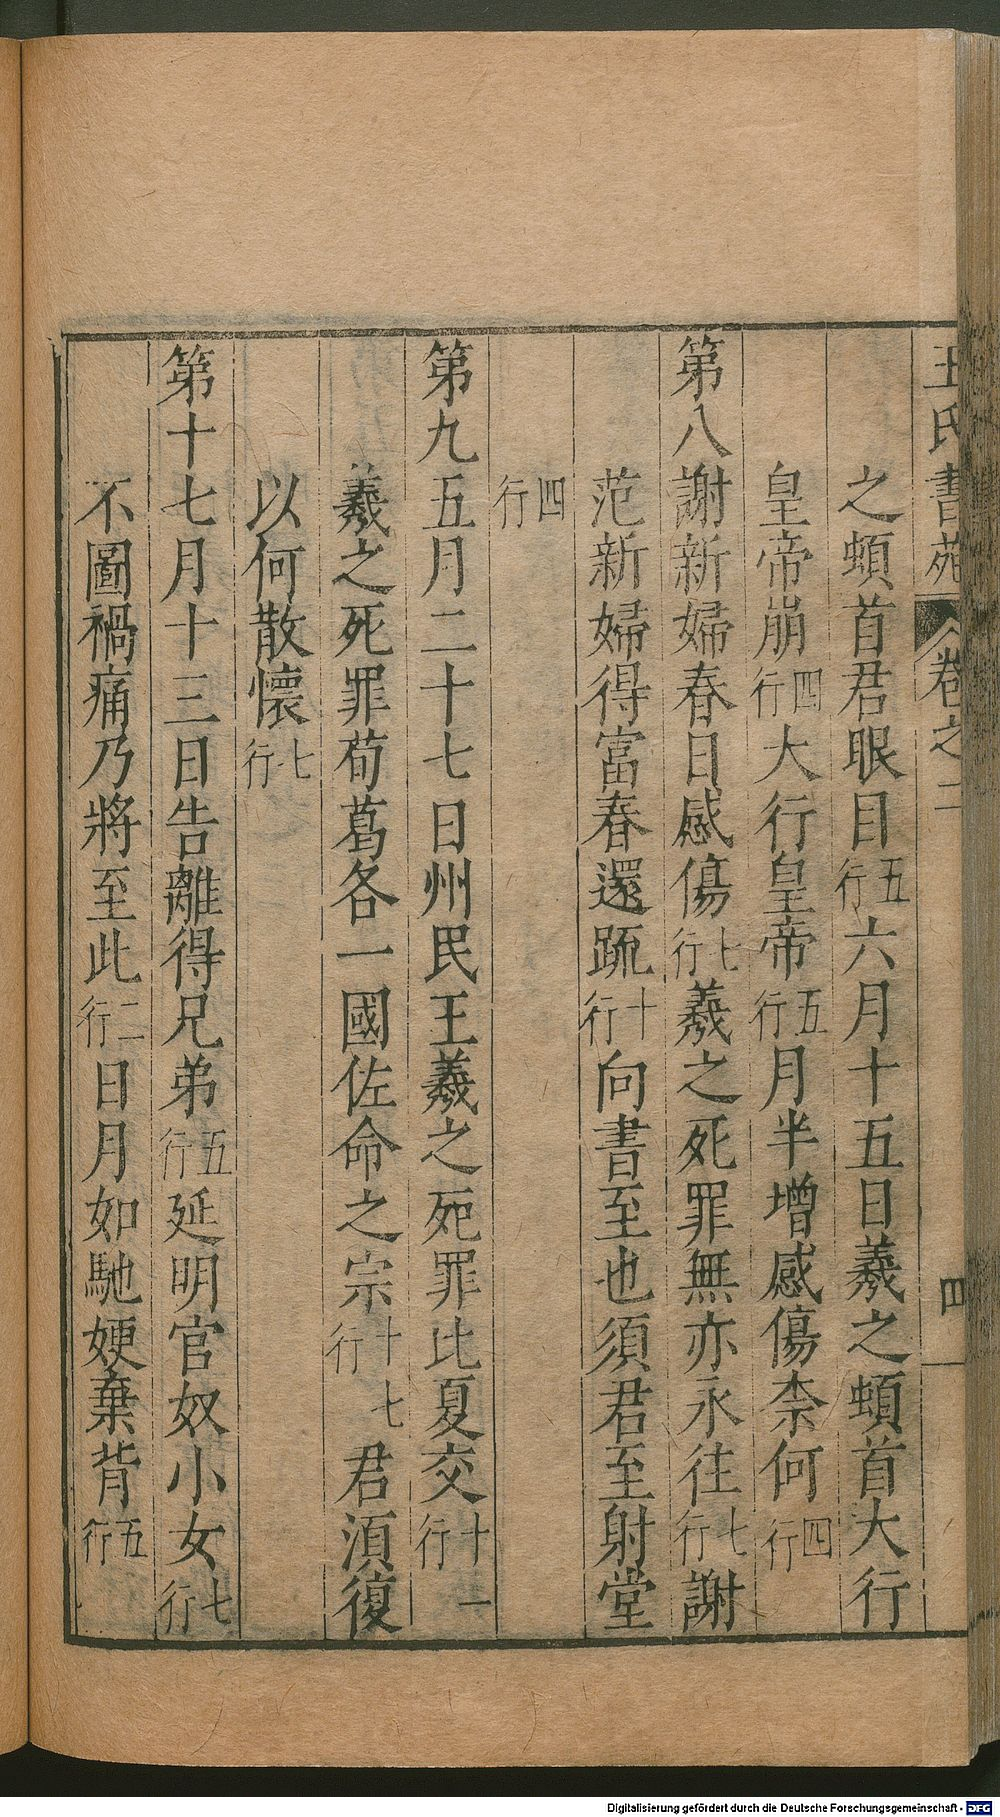 王氏書苑 卷之二 四
之頓首君眼目五行六月十五日羲之頓首大行
皇帝崩四行大行皇帝五行月半增感傷柰何四行
第八謝新婦春日感傷七行羲之死罪無亦永往七行謝
范新婦得富春還䟽十行向書至也須君至射堂
四行
第九五月二十七日州民王羲之死罪比夏交十一行
羲之死罪荀葛各一國佐命之宗十七行君湏復
以何散懷七行
第十七月十三日告離得兄弟五行延明官奴小女七行
不圖禍痛乃將至此二行日月如馳㛐棄背五行
Digitalisierung gefördert durch die Deutsche Forschungsgemeinschaft - DFG